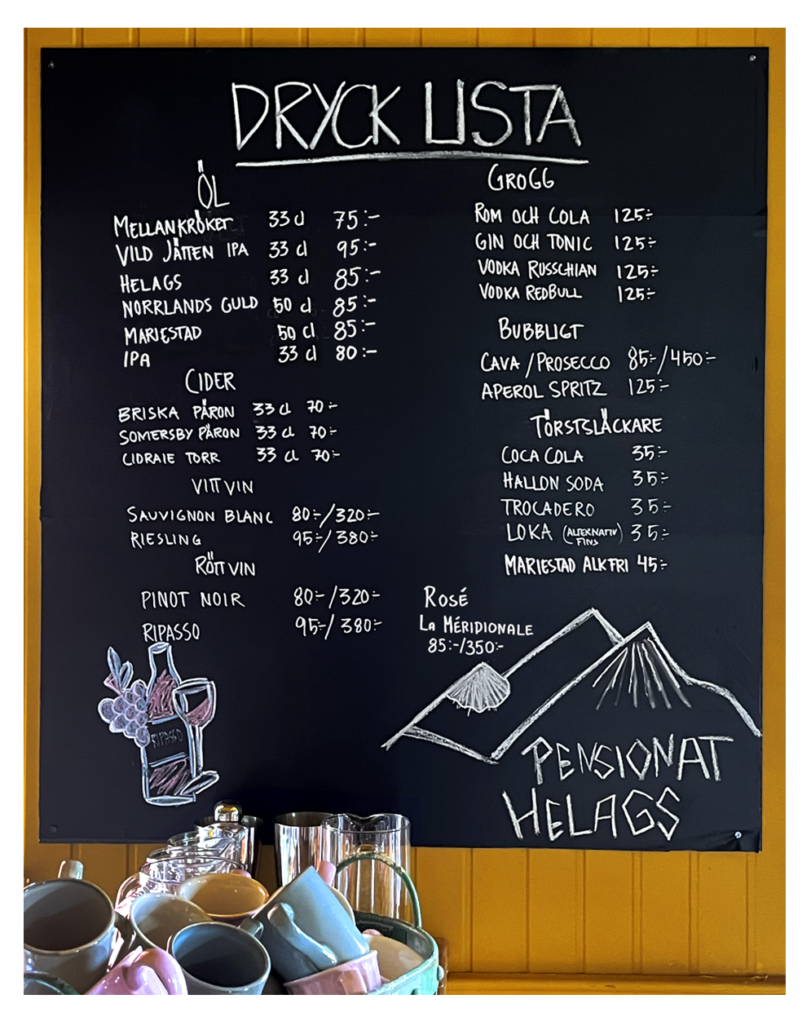 DRYCK LISTA
ÖL
MELLANKRÖKET 33 cl 75:-
VILD JÄTTEN IPA 33 cl 95:-
HELAGS 33 cl 85:-
NORRLANDS GULD 50 cl 85:-
MARIESTAD 50 cl 85:-
IPA 33 cl 80:-
CIDER
BRISKA PÄRON 33 cl 70:-
SOMERSBY PÄRON 33 cl 70:-
CIDRAIE TORR 33 cl 70:-
VITT VIN
SAUVIGNON BLANC 80:-/320:-
RIESLING 95:-/380:-
RÖTT VIN
PINOT NOIR 80:-/320:-
RIPASSO 95:-/380:-
RIPASSO
GROGG
ROM OCH COLA 125:-
GIN OCH TONIC 125:-
VODKA RUSSCHIAN 125:-
VODKA REDBULL 125:-
BUBBLIGT
CAVA/PROSECCO 85:-/450:-
APEROL SPRITZ 125:-
TÖRSTSLÄCKARE
COCA COLA 35:-
HALLON SODA 35:-
TROCADERO 35:-
LOKA (ALTERNATIV FINS) 35:-
MARIESTAD ALKFRI 45:-
ROSÉ
LA MÉRIDIONALE
85:-/350:-
PENSIONAT
HELAGS